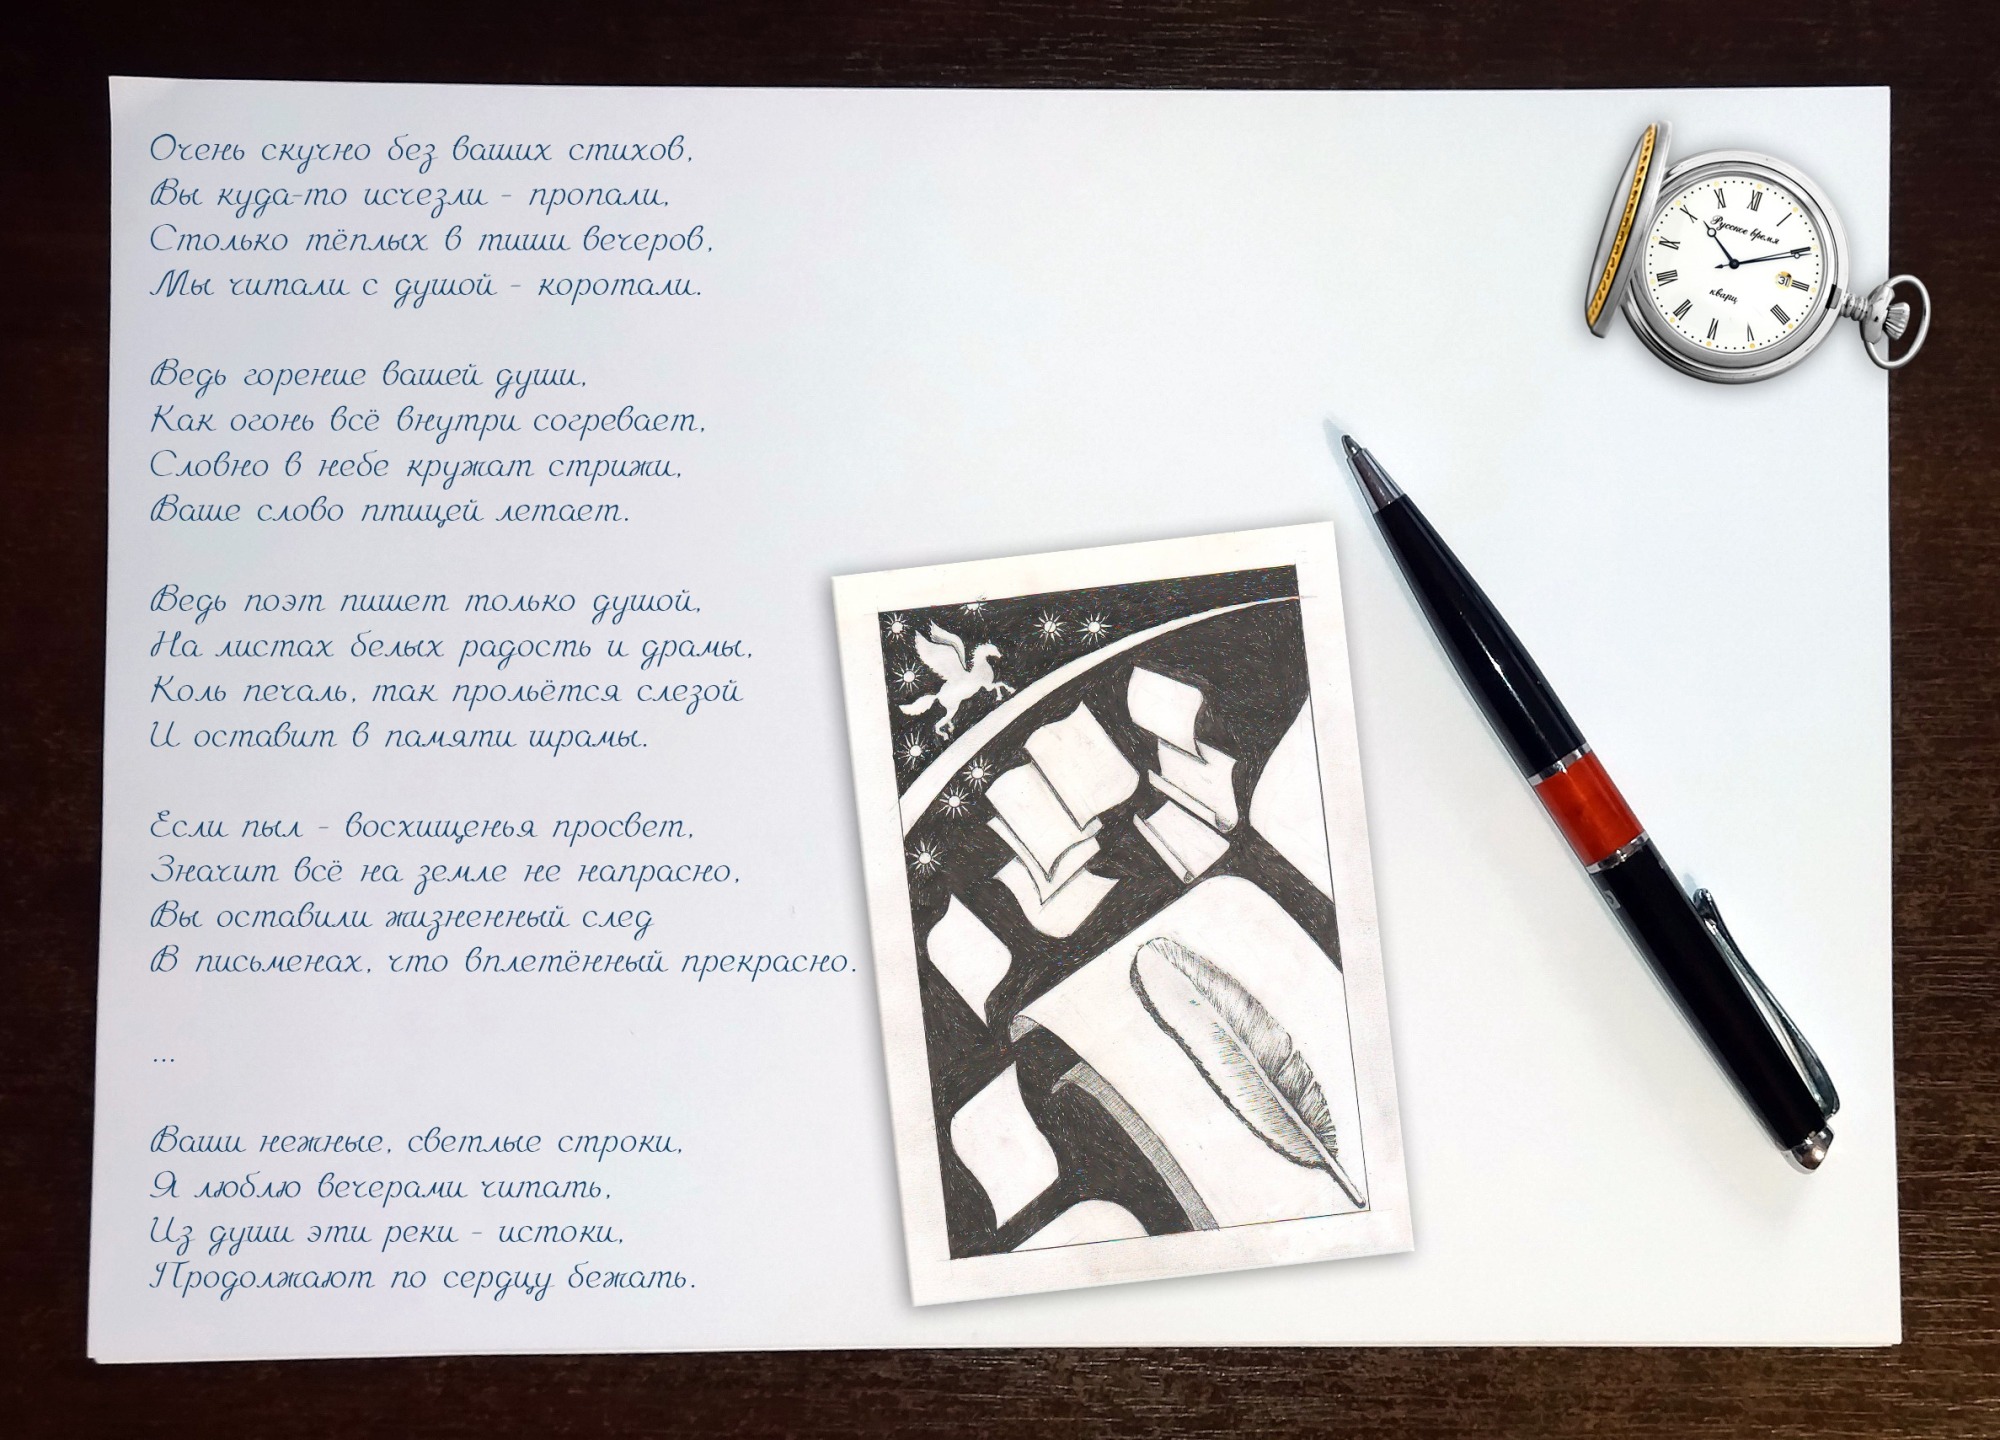 Очень скучно без ваших стихов,
Вы куда-то исчезли - пропали,
Столько тёплых в тиши вечеров,
Мы читали с душой - коротали.
Ведь горение вашей души,
Как огонь всё внутри согревает,
Словно в небе кружат стрижи,
Ваше слово птицей летает.
Ведь поэт пишет только душой,
На листах белых радость и драмы,
Коль печаль, так прольётся слезой
И оставит в памяти шрамы.
Если пыл - восхищенья просвет,
Значит всё на земле не напрасно,
Вы оставили жизненный след
В письменах, что вплетённый прекрасно.
...
Ваши нежные, светлые строки,
Я люблю вечерами читать,
Из души эти реки - истоки,
Продолжают по сердцу бежать.
XII
I
II
III
IIII
V
VI
VII
VIII
IX
X
XI
Русское время
31
кварц